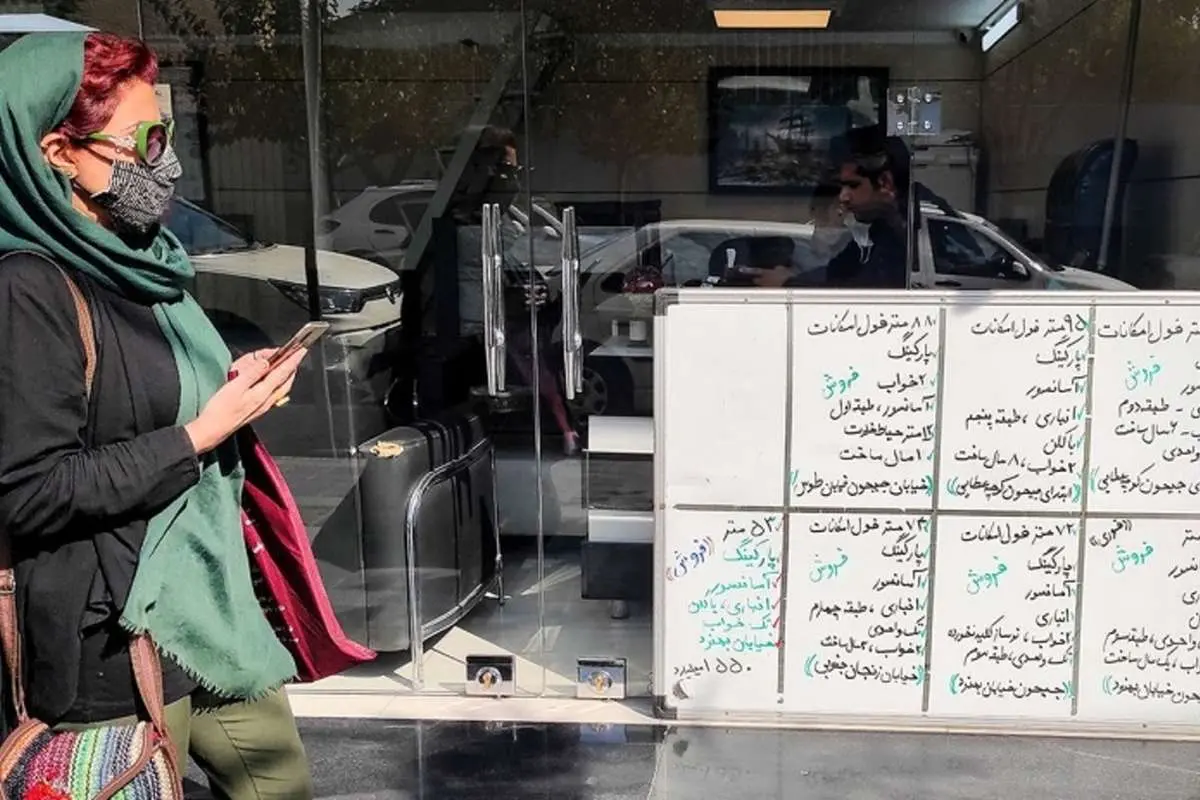 ۸۸ متر فول امکانات
پارکینگ
۲ خواب فروش
آسانسور، طبقه اول
متر حیاط خلوت
۱ سال ساخت
((خیابان جیحون خیابان طوس))
۹۵ متر فول امکانات
پارکینگ
آسانسور
انباری، طبقه پنجم
بالکن
۲ خواب، ۸ سال ساخت
متر فول امکانات
فروش
طبقه دوم
۶ سال ساخت
واحدی
۵۳ متر
پارکینگ ((فروش))
آسانسور
انباری، بالکن
تک خواب
خیابان بهنود
۵۵۰ ۱ میلیارد
۷۳ متر فول امکانات
پارکینگ
فروش
آسانسور
انباری، طبقه چهارم
تک واحدی
۲ خواب، ۲ سال ساخت
((خیابان زنجان جنوبی))
۷۲ متر فول امکانات
پارکینگ
فروش
آسانسور
انباری
۲ خواب، نوساز کلید نخورده
تک واحدی، طبقه سوم
((جیحون خیابان بهنود))
((فوری))
متر
فروش
واحدی، طبقه سوم
یک سال ساخت
خیابان بهنود))